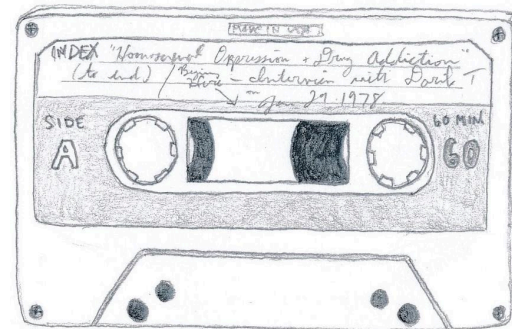 MADE IN USA
INDEX "Homosexual Oppression + Drug Addiction"
(to end) Begins Here - Interview with David T
on Jan 29, 1978
SIDE
A
60 MIN
60